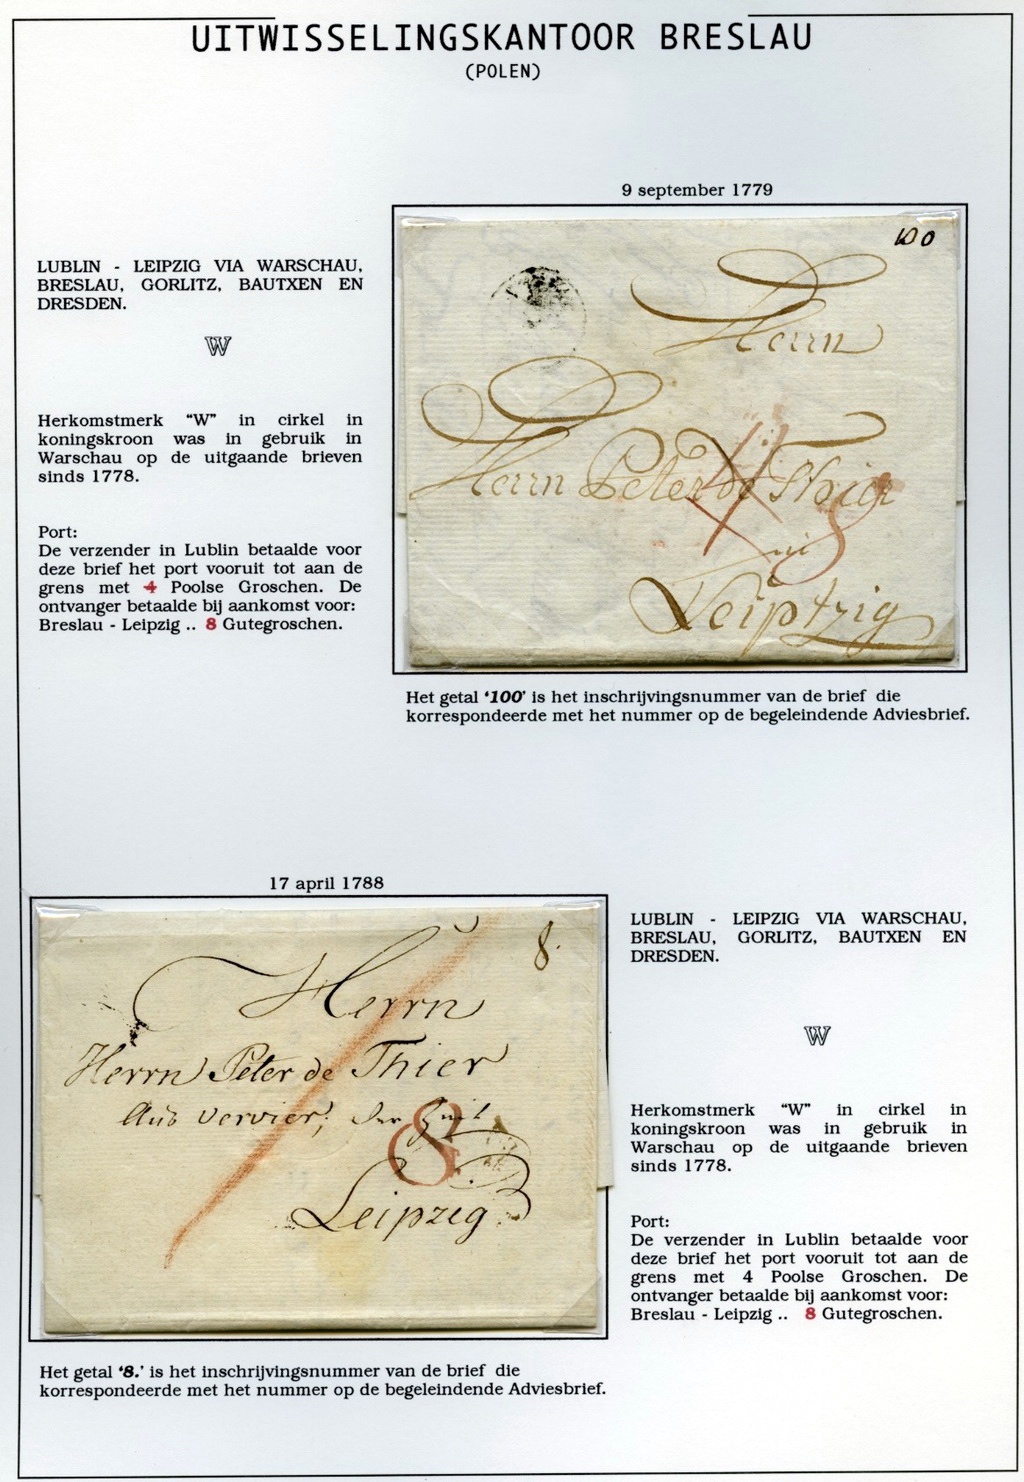 UITWISSELINGSKANTOOR BRESLAU
(POLEN)
9 september 1779
LUBLIN - LEIPZIG VIA WARSCHAU,
BRESLAU, GORLITZ, BAUTXEN EN
DRESDEN.
W
Herkomstmerk “W” in cirkel in
koningskroon was in gebruik in
Warschau op de uitgaande brieven
sinds 1778.
Port:
De verzender in Lublin betaalde voor
deze brief het port vooruit tot aan de
grens met 4 Poolse Groschen. De
ontvanger betaalde bij aankomst voor:
Breslau - Leipzig .. 8 Gutegroschen.
100
Herrn
Herrn Peter de Thier
4
8
Leiptzig
Het getal ‘100’ is het inschrijvingsnummer van de brief die
korrespondeerde met het nummer op de begeleindende Adviesbrief.
17 april 1788
8.
Herrn
Herrn Peter de Thier
Aus Vervier,
8
Leipzig
LUBLIN - LEIPZIG VIA WARSCHAU,
BRESLAU, GORLITZ, BAUTXEN EN
DRESDEN.
W
Herkomstmerk “W” in cirkel in
koningskroon was in gebruik in
Warschau op de uitgaande brieven
sinds 1778.
Port:
De verzender in Lublin betaalde voor
deze brief het port vooruit tot aan de
grens met 4 Poolse Groschen. De
ontvanger betaalde bij aankomst voor:
Breslau - Leipzig .. 8 Gutegroschen.
Het getal ‘8.’ is het inschrijvingsnummer van de brief die
korrespondeerde met het nummer op de begeleindende Adviesbrief.